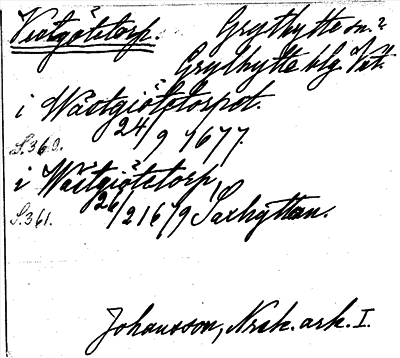 Västgötetorp. Grythytte sn.?
Grythytte blg. Vst.
i Wästgiötetorpet.
S.360. 24/9 1677.
i Wästgiötetorp,
S.361. 26/2 1679 Saxhyttan.
Johansson, Norsk. ark. I.